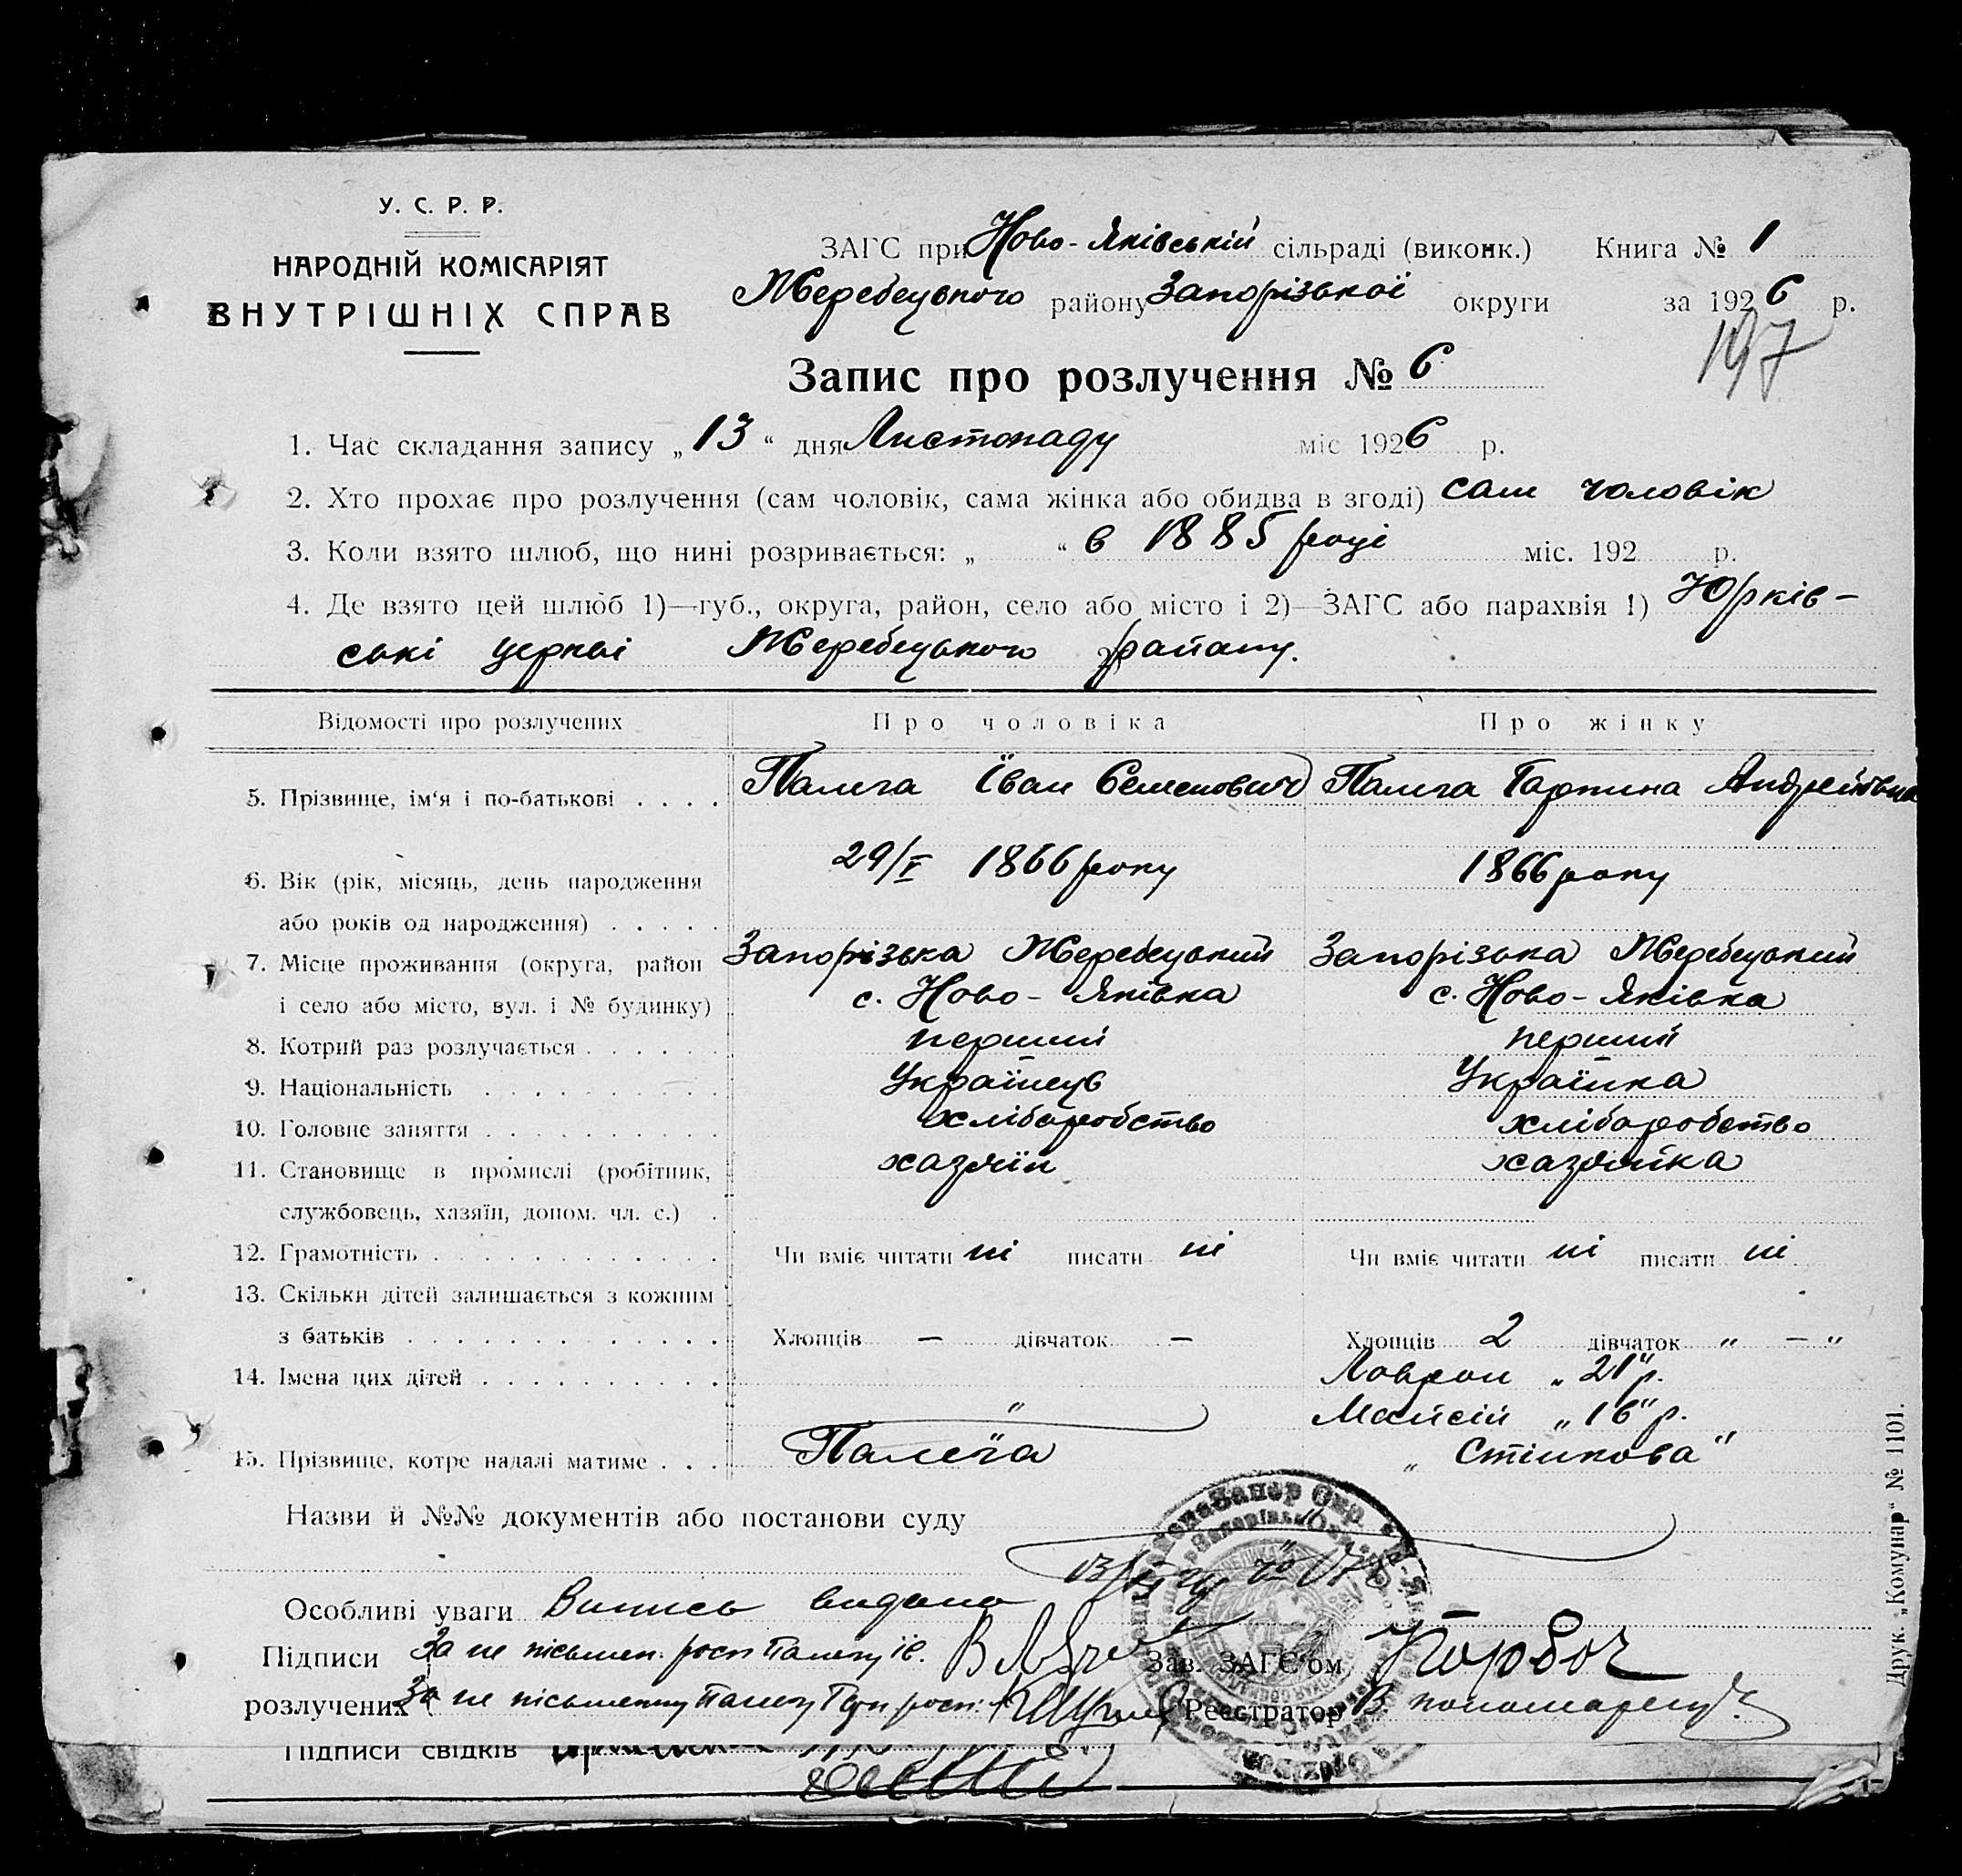 У. С. Р. Р.
НАРОДНІЙ КОМІСАРІЯТ
ВНУТРІШНІХ СПРАВ
ЗАГС при Ново-Яківській сільраді (виконк.) Книга № 1
Жеребецького району Запорізької округи за 1926 р.
197
Запис про розлучення № 6
1. Час складання запису „13“ дня Листопаду міс 1926 р.
2. Хто прохає про розлучення (сам чоловік, сама жінка або обидва в згоді) сам чоловік
3. Коли взято шлюб, що нині розривається: „ “ в 1885 році міс. 192 р.
4. Де взято цей шлюб 1)—губ., округа, район, село або місто і 2)—ЗАГС або парахвія 1) Юрків-
ські церкві Жеребецького 2) району.
Відомості про розлучених Про чоловіка Про жінку
5. Прізвище, ім‘я і по-батькові . . . . Палега Іван Семенович Палега Гарпина Андреївна
6. Вік (рік, місяць, день народження 29/V 1866 року 1866 року
або років од народження) . . . . .
7. Місце проживання (округа, район Запорізька Жеребецький Запорізька Жеребецький
і село або місто, вул. і № будинку) с. Ново-Яківка с. Ново-Яківка
8. Котрий раз розлучається . . . . . . перший перший
9. Національність . . . . . . . . . . Українець Українка
10. Головне заняття . . . . . . . . . . хліборобство хліборобство
11. Становище в промислі (робітник, хазяїн хазяйка
службовець, хазяїн, допом. чл. с.) .
12. Грамотність . . . . . . . . . . . . Чи вміє читати ні писати ні Чи вміє читати ні писати ні
13. Скільки дітей залишається з кожним
з батьків . . . . . . . . . . . . . Хлопців — дівчаток — Хлопців 2 дівчаток „ — “
14. Імена цих дітей . . . . . . . . . . Лаврон „21“ р.
“ Мойсій „16“ р.
15. Прізвище, котре надалі матиме . . . Палега „Стінкова“
Назви й №№ документів або постанови суду
Особливі уваги Випись видана
Підписи За не письмен. росп Палегу Ів. Зав. ЗАГС'ом
розлучених За не письменну Палегу Гар росп. Реєстратор В. Пономаренко
Підписи свідків
Друк. „Комунар“ № 1101.